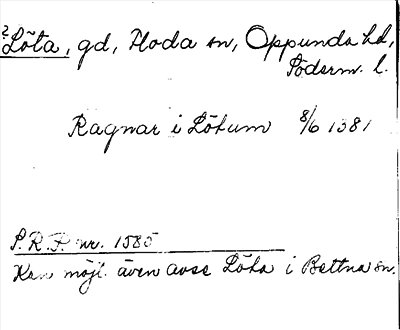 ? Löta, gd, Floda sn, Oppunda hd,
Söderm. l.
Ragnar i Löthum 8/6 1381
S.R.P. nr. 1585
Kan möjl. även avse Löta i Bettna sn.